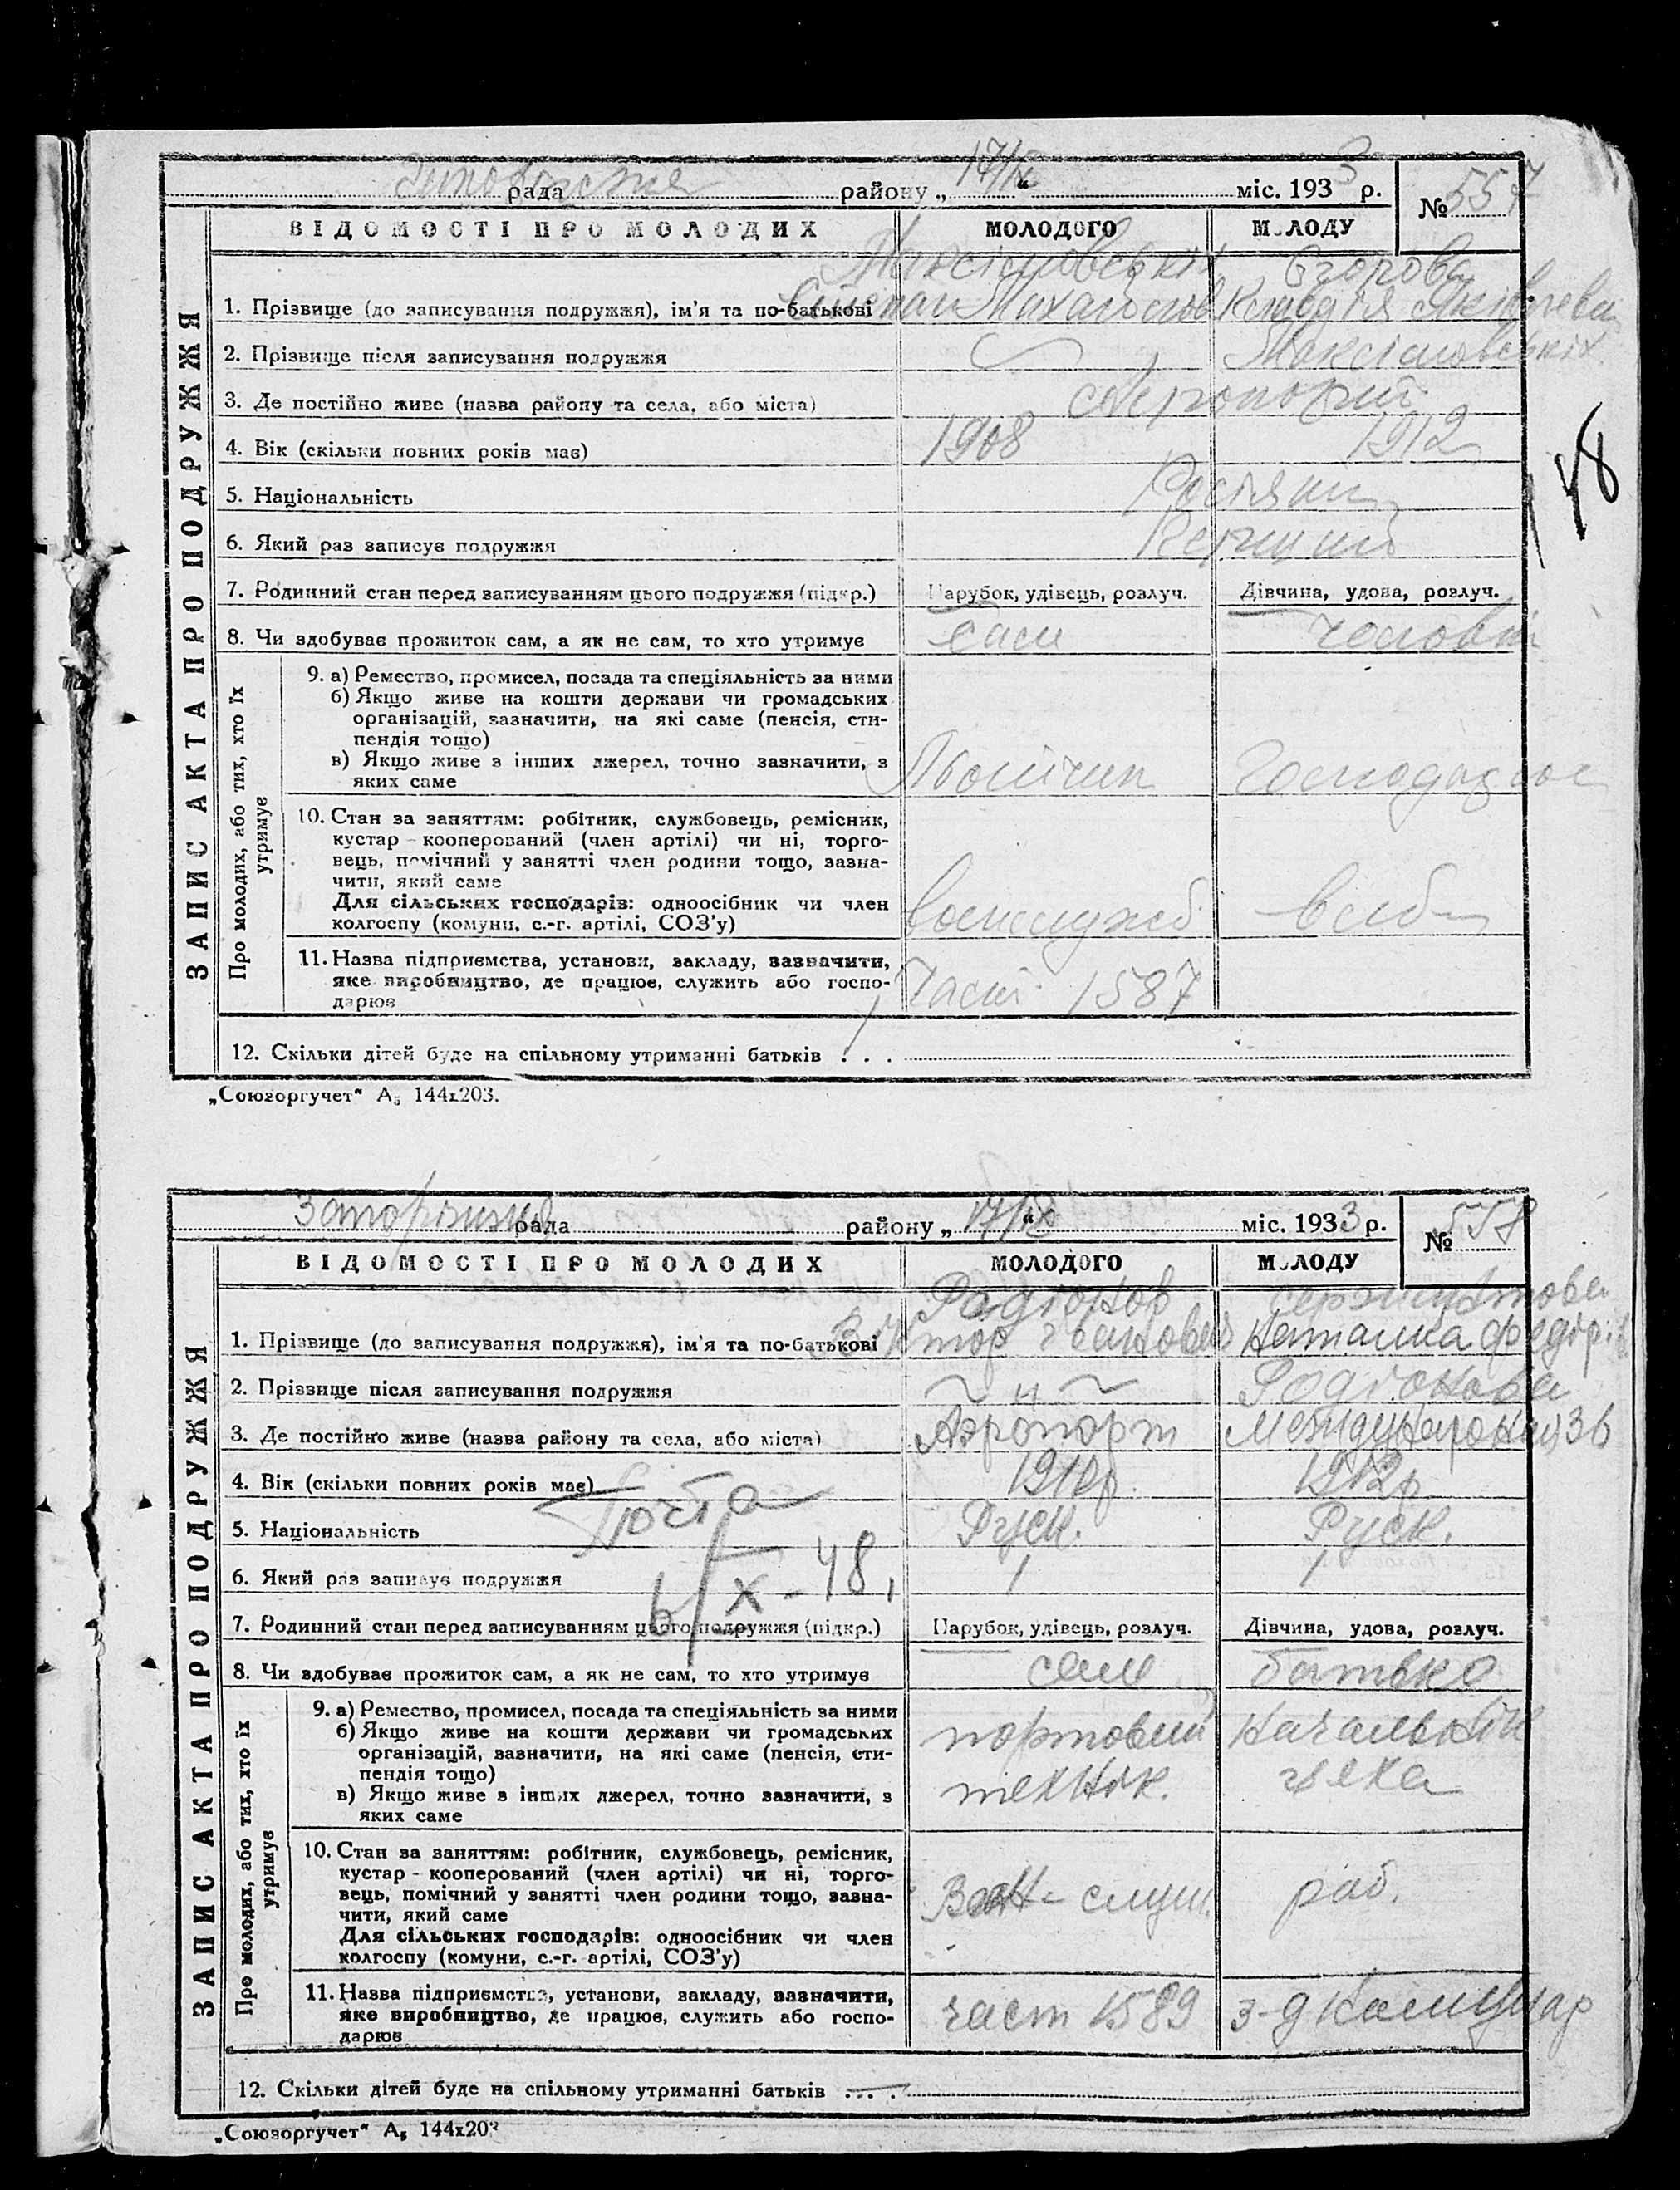 рада району „ 17/IX “ міс. 1933 р. № 557
ВІДОМОСТІ ПРО МОЛОДИХ МОЛОДОГО МОЛОДУ
ЗАПИС АКТА ПРО ПОДРУЖЖЯ
Єгорова
1. Прізвище (до записування подружжя), ім'я та по-батькові Степан Клавдія
2. Прізвище після записування подружжя
3. Де постійно живе (назва району та села, або міста) Аеропорт
4. Вік (скільки повних років має) 1908 1912
5. Національність Росіяни
6. Який раз записує подружжя Перший
7. Родинний стан перед записуванням цього подружжя (підкр.) Парубок, удівець, розлуч. Дівчина, удова, розлуч.
8. Чи здобуває прожиток сам, а як не сам, то хто утримує сам чоловік
Про молодих, або тих, хто їх утримує
9. а) Ремество, промисел, посада та спеціяльність за ними
б) Якщо живе на кошти держави чи громадських
організацій, зазначити, на які саме (пенсія, сти-
пендія тощо)
в) Якщо живе з інших джерел, точно зазначити, з
яких саме
10. Стан за заняттям: робітник, службовець, ремісник,
кустар - кооперований (член артілі) чи ні, торго-
вець, помічний у занятті член родини тощо, зазна-
чити, який саме
Для сільських господарів: одноосібник чи член
колгоспу (комуни, с.-г. артілі, СОЗ'у)
11. Назва підприємства, установи, закладу, зазначити,
яке виробництво, де працює, служить або госпо- 1587
дарює
12. Скільки дітей буде на спільному утриманні батьків . . .
„Союзоргучет" А5 144х203.
48
рада району „ 17/IX “ міс. 1933 р. № 558
ВІДОМОСТІ ПРО МОЛОДИХ МОЛОДОГО МОЛОДУ
ЗАПИС АКТА ПРО ПОДРУЖЖЯ
Радіонов
1. Прізвище (до записування подружжя), ім'я та по-батькові Віктор Наталка
2. Прізвище після записування подружжя — " — Радіонова
3. Де постійно живе (назва району та села, або міста) Аэропорт 36
4. Вік (скільки повних років має) 1910р. 1912р.
5. Національність Руск. Руск.
6. Який раз записує подружжя 1 1
X - 48
7. Родинний стан перед записуванням цього подружжя (підкр.) Парубок, удівець, розлуч. Дівчина, удова, розлуч.
8. Чи здобуває прожиток сам, а як не сам, то хто утримує сам батько
Про молодих, або тих, хто їх утримує
9. а) Ремество, промисел, посада та спеціяльність за ними
б) Якщо живе на кошти держави чи громадських портовий начальнік
організацій, зазначити, на які саме (пенсія, сти-
пендія тощо) технік. цеха
в) Якщо живе з інших джерел, точно зазначити, з
яких саме
10. Стан за заняттям: робітник, службовець, ремісник,
кустар - кооперований (член артілі) чи ні, торго-
вець, помічний у занятті член родини тощо, зазна- раб.
чити, який саме
Для сільських господарів: одноосібник чи член
колгоспу (комуни, с.-г. артілі, СОЗ'у)
11. Назва підприємства, установи, закладу, зазначити,
яке виробництво, де працює, служить або госпо- част 1589 з-д Комунар
дарює
12. Скільки дітей буде на спільному утриманні батьків . . .
„Союзоргучет" А5 144х203